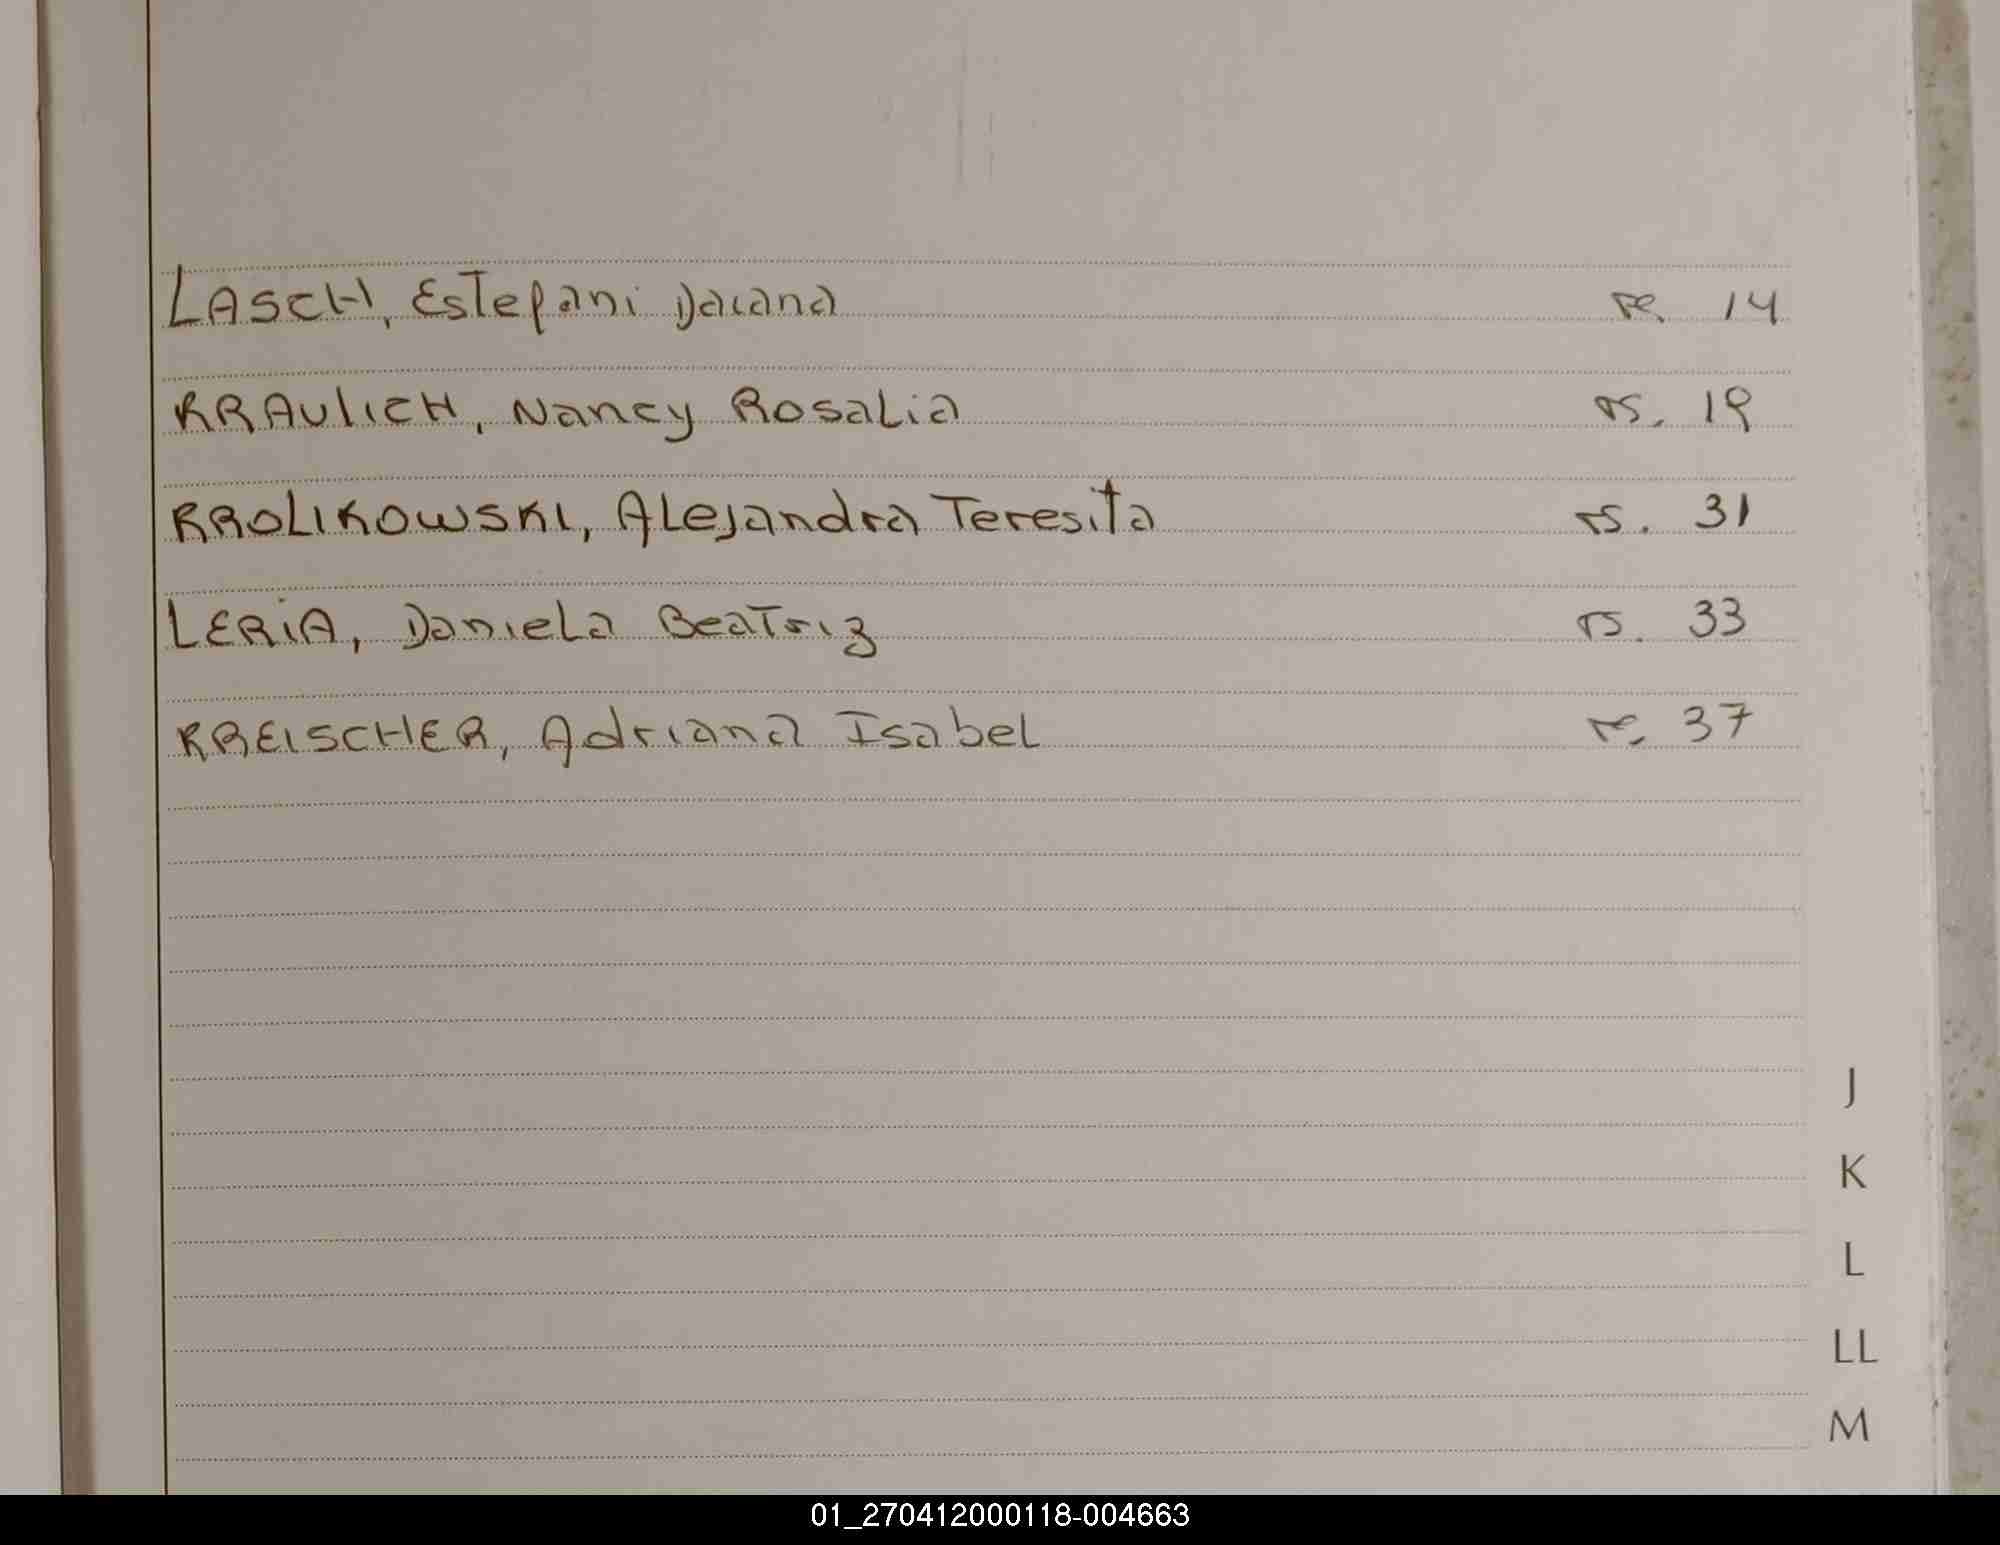 LASCH, Estefani Daiana 14
KRAULICH, Nancy Rosalia 19
KROLIKOWSKI, Alejandra Teresita 31
LERiA, Daniela Beatriz 33
KREISCHER, Adriana Isabel 37
J
K
L
LL
M
01_270412000118-004663